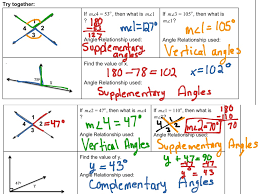 Try together:
If m∠4 = 53°, then what is m∠1
?
180
- 53
127
m∠1=127°
Angle Relationship used:
Supplementary
angles
If m∠3 = 105°, then what is
m∠1?
m∠1=105°
Angle Relationship used:
Vertical angles
4 1 2 3
Find the value of x.
180 - 78 = 102
x=102°
Angle Relationship used:
Supplementary Angles
If m∠2 = 47°, then what is m∠4
?
m∠4 = 47°
Angle Relationship used:
Vertical Angles
what is
m∠2?
m∠2=70°
180
-110
70
Angle Relationship used:
Supplementary Angles
2=47°
Find the value of y.
y = 43°
y + 47 = 90
- 47 - 47
y = 43
Angle Relationship used:
Complementary Angles